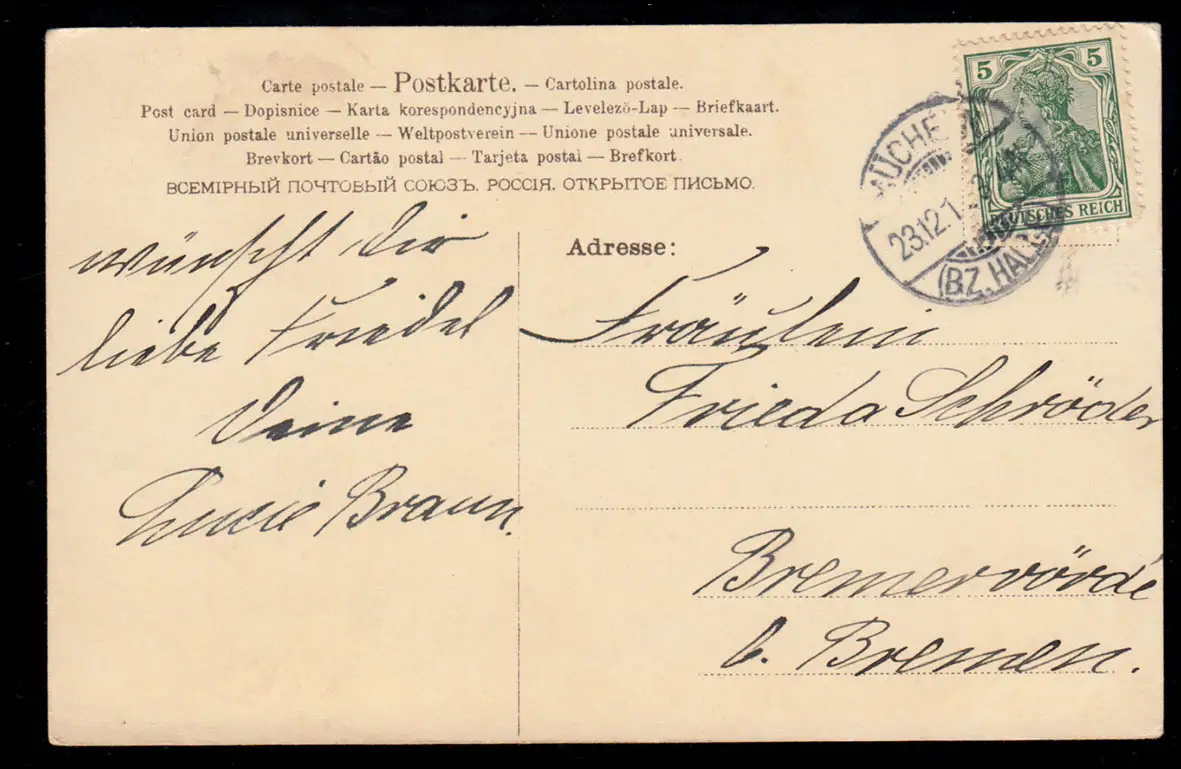 Carte postale — Postkarte. — Cartolina postale.
Post card — Dopisnice — Karta korespondencyjna — Levelező-Lap — Briefkaart.
Union postale universelle — Weltpostverein — Unione postale universale.
Brevkort — Cartão postal — Tarjeta postal — Brefkort.
ВСЕМІРНЫЙ ПОЧТОВЫЙ СОЮЗЪ. РОССІЯ. ОТКРЫТОЕ ПИСЬМО.
wünscht dir
liebe Friedel
Deine
Lucie Braun.
5 5
DEUTSCHES REICH
MÜCHELN
23.12.1
(BZ. HALLE)
Adresse:
Fräulein
Frieda Schröder
Bremervörde
b. Bremen.